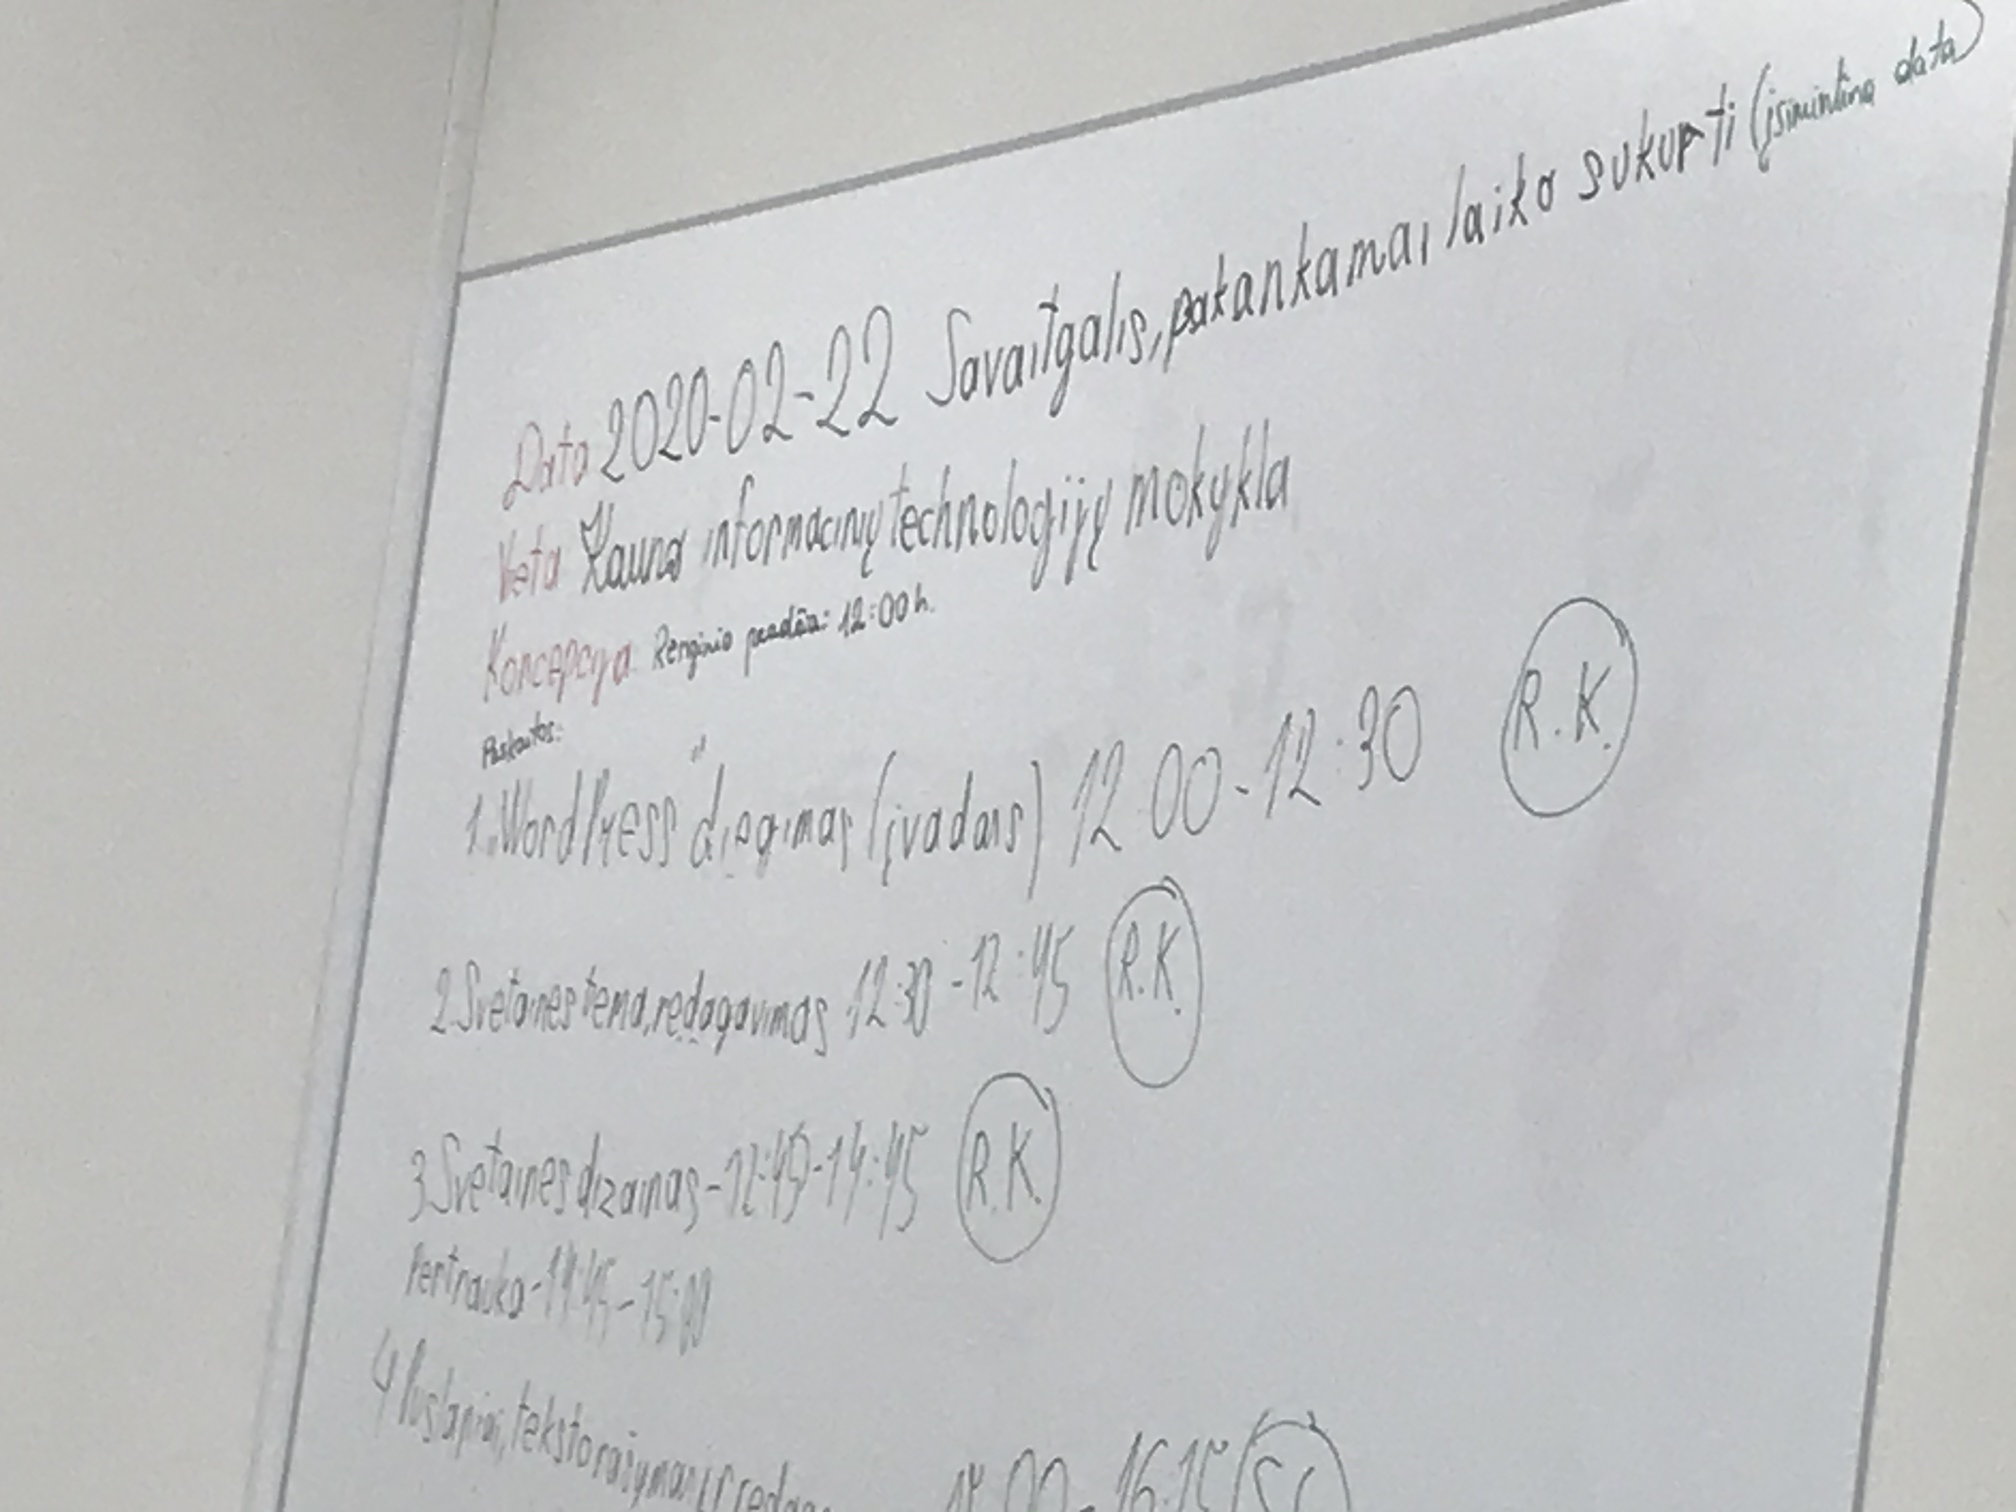 Data 2020-02-22 Savaitgalis, pakankamai laiko sukurti (įsimintina data)
Vieta Kauno informacinių technologijų mokykla
Koncepcija Renginio pradžia: 12:00 h.
Paskaitos:
1. "WordPress" diegimas (įvadas) 12:00-12:30 R.K.
2. Svetainės tema, redagavimas 12:30-12:45 R.K.
3. Svetainės dizainas - 12:45-14:45 R.K.
Pertrauka - 14:45-15:00
4 Puslapiai, teksto rašymas ir 15:00-16:15